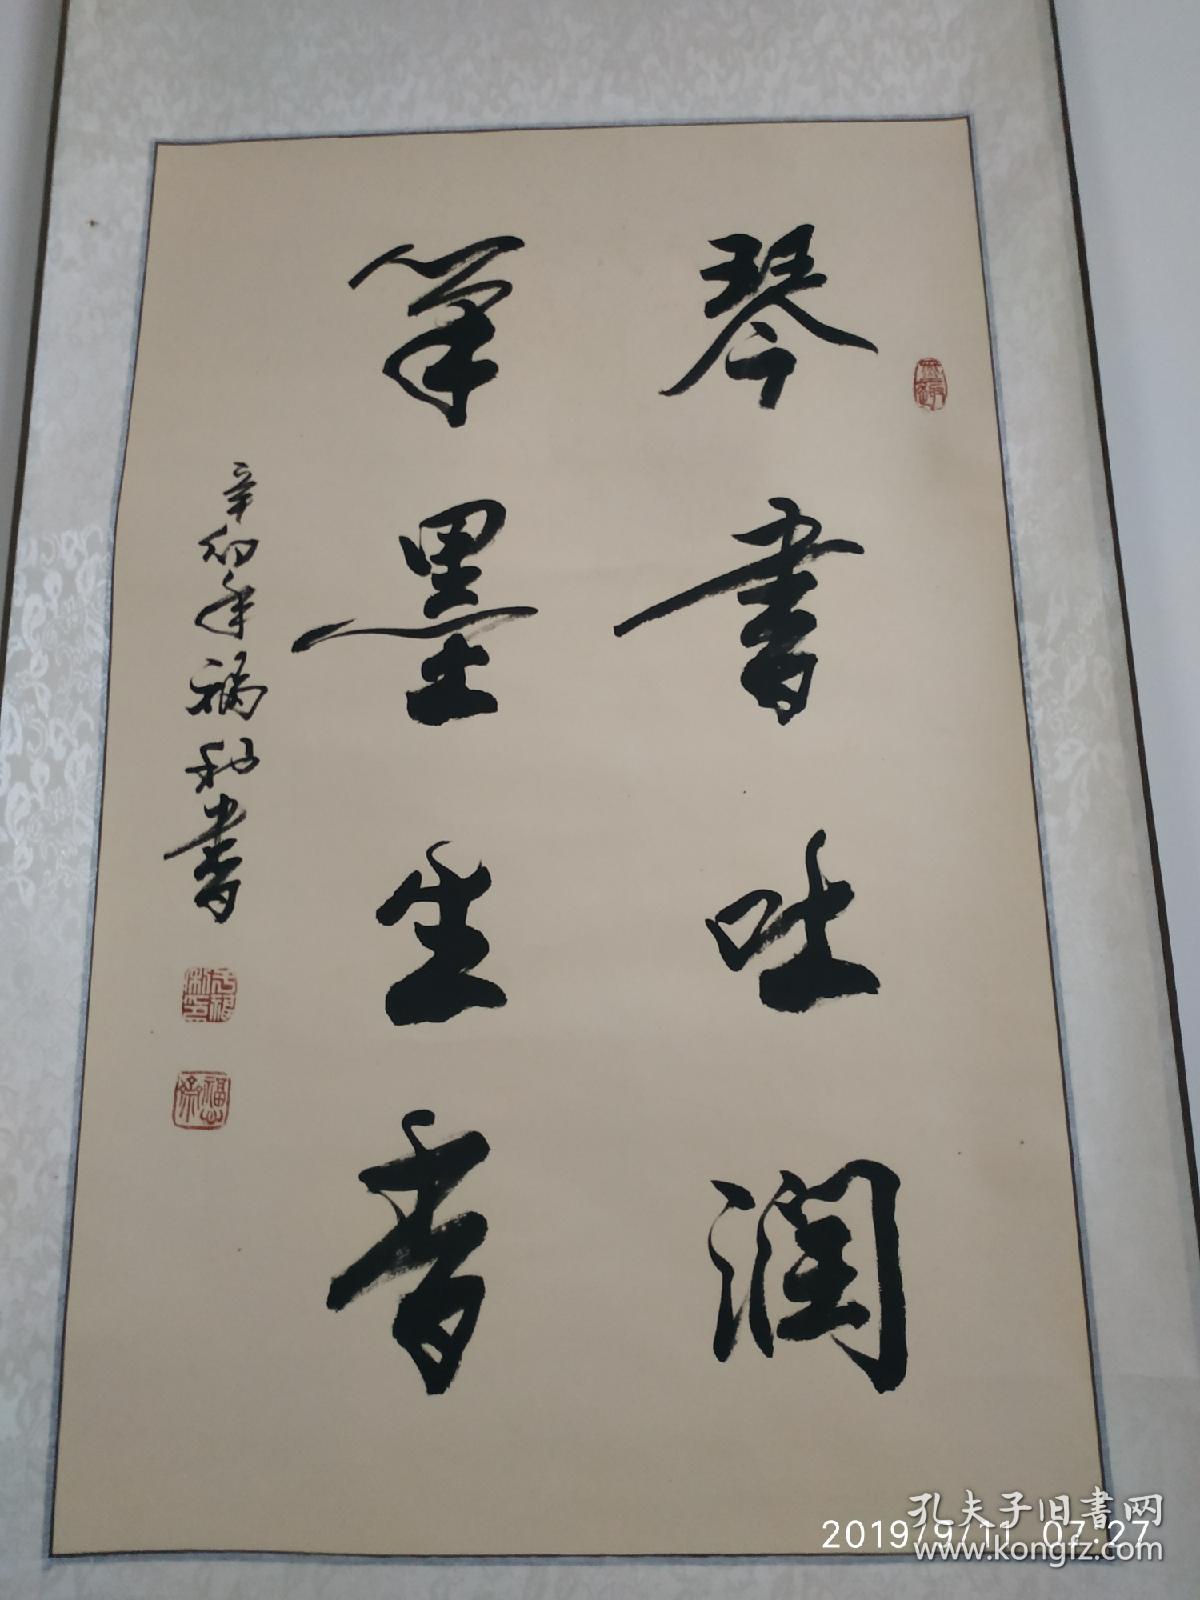 琴書吐潤
筆墨生香
辛卯年福初書
孔夫子旧書网
2019/9/11 07:27
www.kongfz.com